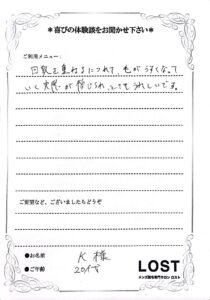 ＊喜びの体験談をお聞かせ下さい＊
ご利用メニュー：
回数を重ねるにつれて毛がうすくなって
いく実感が感じられ、とてもうれしいです。
ご要望など、ございましたらどうぞ
●お名前 K 様
●ご年齢 20代
LOST
メンズ脱毛専門サロン ロスト